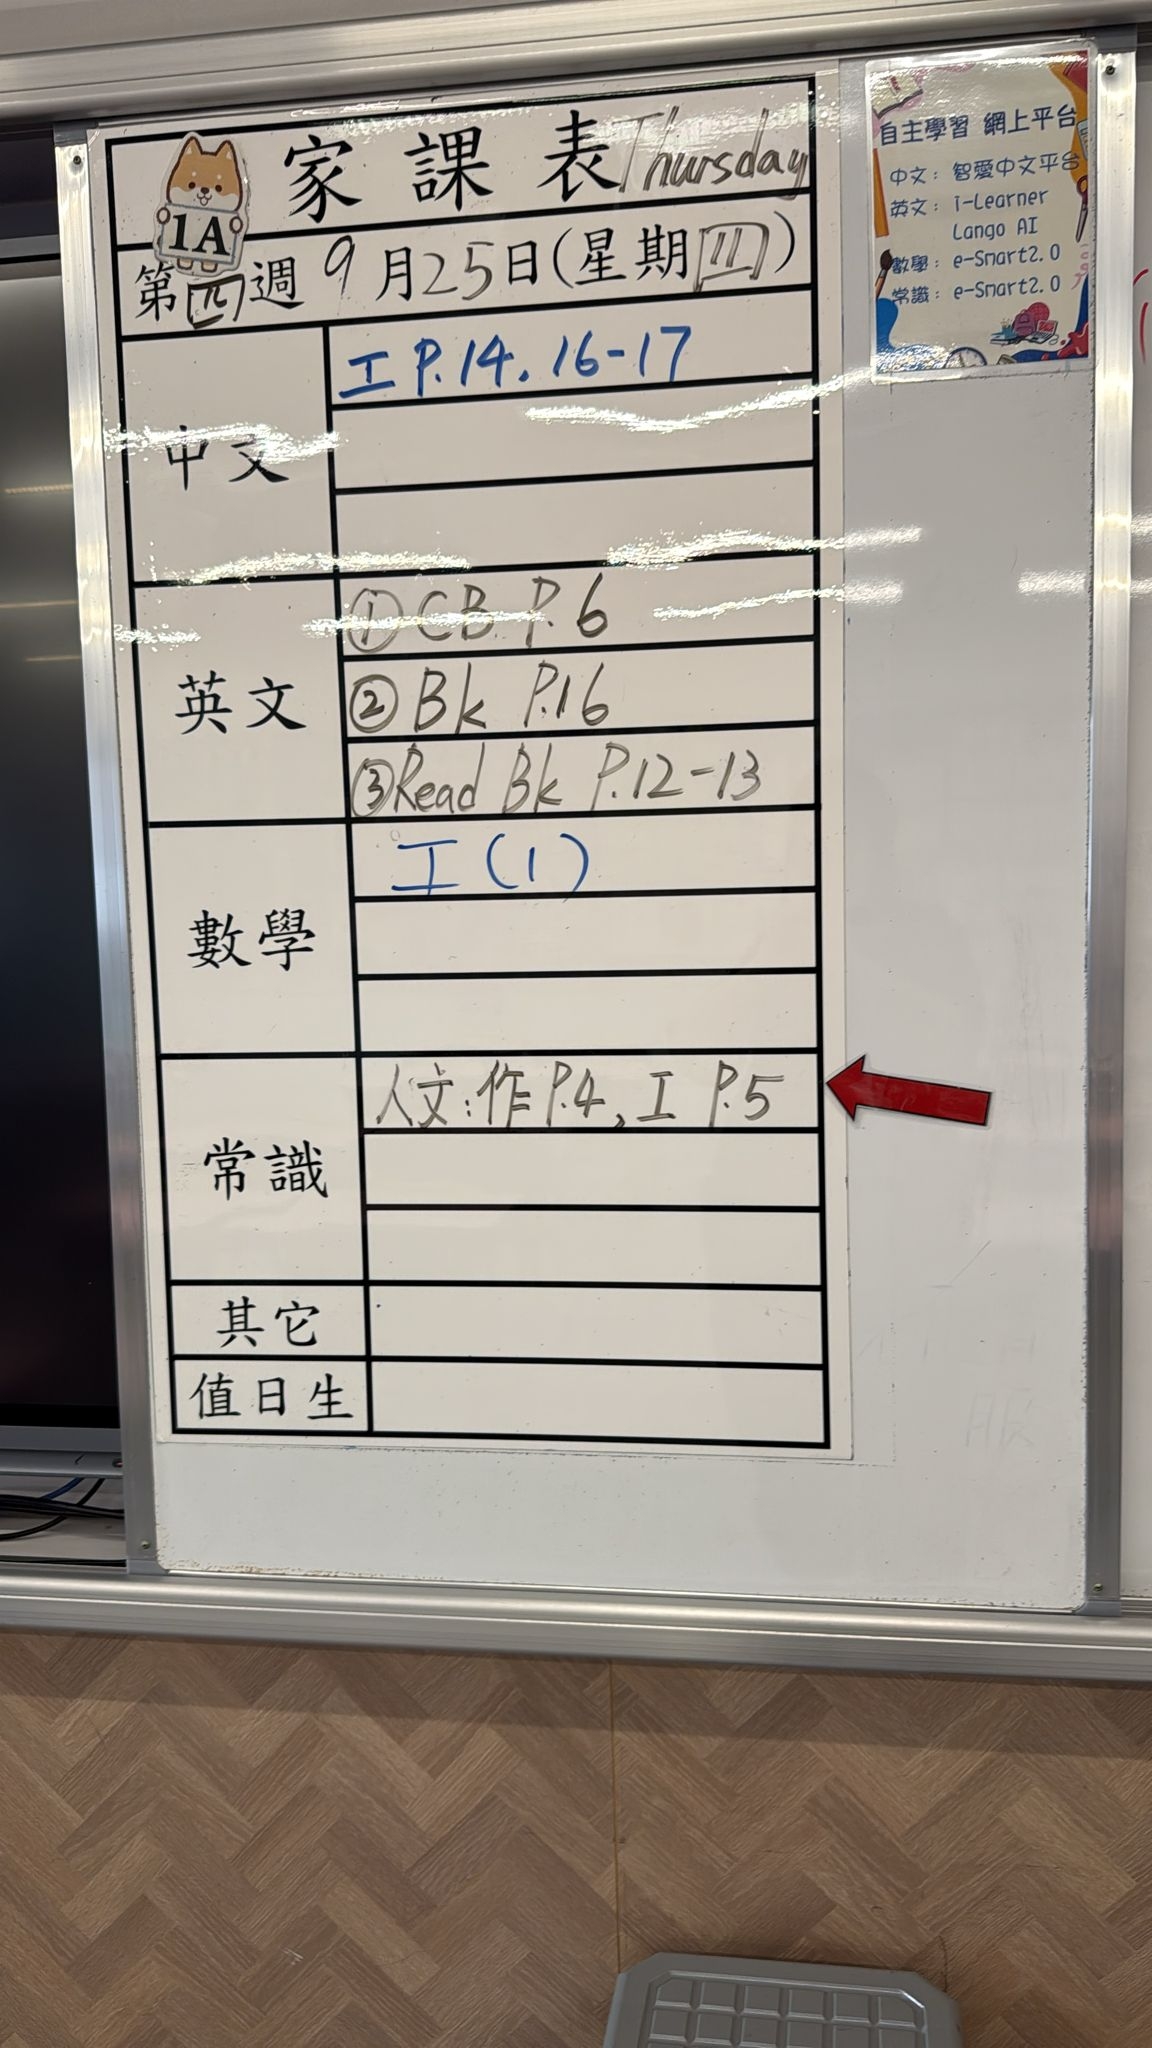 家課表 Thursday
1A
第四週 9月25日(星期四)
中文
工 P.14. 16-17
英文
① CB P.6
② Bk P.16
③ Read Bk P.12-13
數學
工(1)
常識
人文:作 P.4, 工 P.5
其它
值日生
自主學習 網上平台
中文: 智愛中文平台
英文: i-Learner
Lango AI
數學: e-Smart2.0
常識: e-Smart2.0